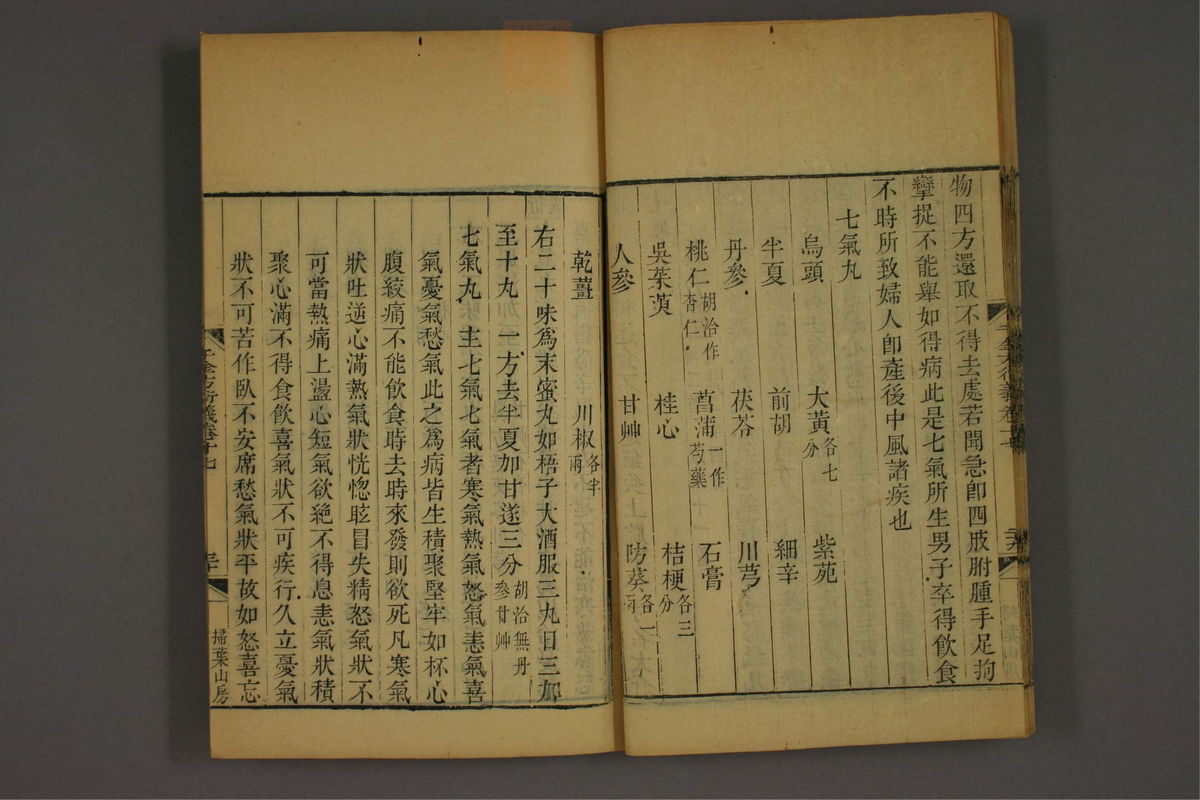 物四方還取不得去處若聞急卽四肢胕腫手足拘
攣捉不能舉如得病此是七氣所生男子卒得飲食
不時所致婦人卽產後中風諸疾也
七氣丸
烏頭 大黃各七分 紫苑
半夏 前胡 細辛
丹參 茯苓 川芎
桃仁胡洽作杏仁 菖蒲一作芍藥 石膏
吳茱萸 桂心 桔梗各三分
人參 甘艸 防葵各一兩
乾薑 川椒各半兩
右二十味爲末蜜丸如梧子大酒服三丸日三加
至十丸一方去半夏加甘遂三分胡洽無丹參甘艸
七氣丸主七氣七氣者寒氣熱氣怒氣恚氣喜
氣憂氣愁氣此之爲病皆生積聚堅牢如杯心
腹絞痛不能飲食時去時來發則欲死凡寒氣
狀吐逆心滿熱氣狀恍惚眩冒失精怒氣狀不
可當熱痛上盪心短氣欲絕不得息恚氣狀積
聚心滿不得食飲喜氣狀不可疾行久立憂氣
狀不可苦作臥不安席愁氣狀平故如怒喜忘
千金方衍義卷十七
掃葉山房